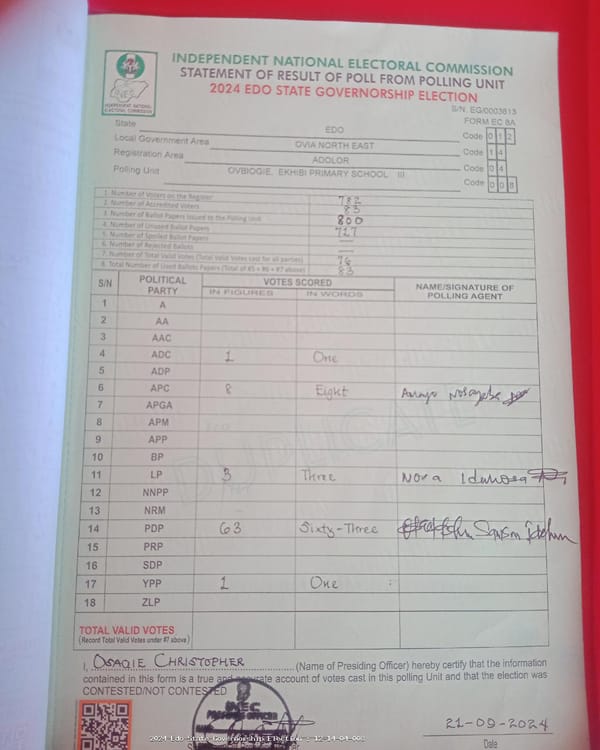 INDEPENDENT NATIONAL ELECTORAL COMMISSION
STATEMENT OF RESULT OF POLL FROM POLLING UNIT
2024 EDO STATE GOVERNORSHIP ELECTION
S/N. EG/0003813
FORM EC 8A
State EDO Code 0 1 2
Local Government Area OVIA NORTH EAST Code 1 4
Registration Area ADOLOR Code 0 4
Polling Unit OVBIOGIE, EKHIBI PRIMARY SCHOOL III Code 0 0 8
1. Number of Voters on the Register 782
2. Number of Accredited Voters 83
3. Number of Ballot Papers Issued to the Polling Unit 800
4. Number of Unused Ballot Papers 717
5. Number of Spoiled Ballot Papers —
6. Number of Rejected Ballots —
7. Number of Total Valid Votes (Total Valid Votes cast for all parties) 76
8. Total Number of Used Ballots Papers (Total of #5 + #6 + #7 above) 83
S/N POLITICAL PARTY VOTES SCORED NAME/SIGNATURE OF POLLING AGENT
IN FIGURES IN WORDS
1 A
2 AA
3 AAC
4 ADC 1 One
5 ADP
6 APC 8 Eight
7 APGA
8 APM
9 APP
10 BP
11 LP 3 Three Nora Idahosa
12 NNPP
13 NRM
14 PDP 63 Sixty-Three
15 PRP
16 SDP
17 YPP 1 One
18 ZLP
DUPLICATE
TOTAL VALID VOTES
(Record Total Valid Votes under #7 above)
I, OSAGIE CHRISTOPHER (Name of Presiding Officer) hereby certify that the information
contained in this form is a true and accurate account of votes cast in this polling Unit and that the election was
CONTESTED/NOT CONTESTED
INEC
PRESIDING OFFICER
21-09-2024
Date
2024 Edo State Governorship Election : 12-14-04-008